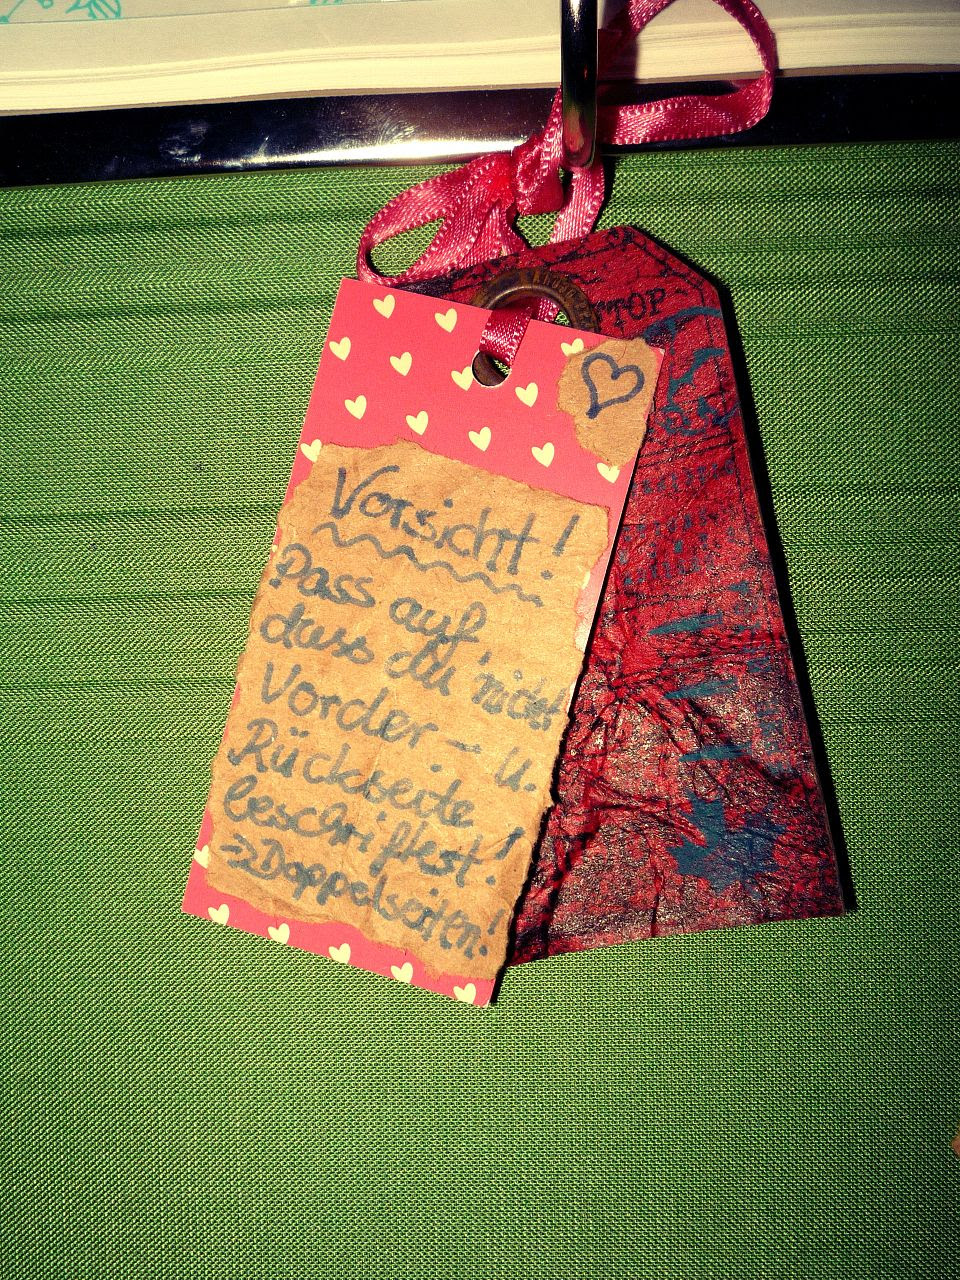 TOP
Vorsicht!
Pass auf,
dass du nicht
Vorder- u.
Rückseite
beschriftest!
⇒Doppelseiten!